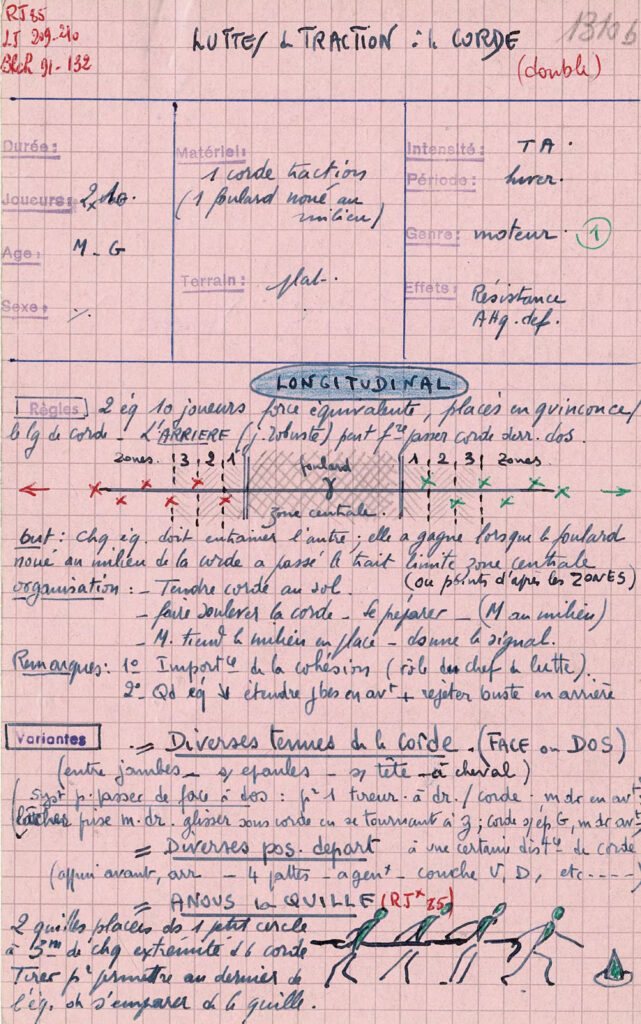 RJ 85
LJ 209-210
Blch 91-132
LUTTES de TRACTION : la CORDE
(double)
1310 b
Durée :
Joueurs : 2 x 10.
Age : M - G
Sexe :
Matériel :
1 corde tractions
(1 foulard noué au
milieu)
Terrain : plat.
Intensité : TA.
Période : hiver.
Genre : moteur. 1
Effets : Résistance
Att. def.
LONGITUDINAL
Règles 2 éq 10 joueurs force équivalente, placés en quinconce/
le lg de corde - L'ARRIERE (j. robuste) peut passer corde derr. dos.
zones 3 2 1 foulard 1 2 3 zones
zone centrale.
but : chq éq. doit entraîner l'autre : elle a gagné lorsque le foulard
noué au milieu de la corde a passé le trait limite zone centrale
(ou points d'après les ZONES)
organisation : - Tendre corde au sol.
- faire soulever la corde - se préparer - (M au milieu)
- M. tient le milieu en place - donne le signal.
Remarques : 1° Importce de la cohésion (rôle du chef de lutte).
2° Qd éq ↓ étendre jbes en avt + rejeter buste en arrière
Variantes = Diverses tenues de la corde. (FACE ou DOS)
(entre jambes - s/ épaules - s/ tête - à cheval)
(syst p. passer de face à dos : pr 1 tireur à dr. / corde - m dr en avt
lâcher prise m. dr. glisser sous corde en se tournant à g ; corde s/ ép G, m dr avt
= Diverses pos. départ à une certaine distce de corde
(appui avant, arr - 4 pattes - agent - couché V, D, etc ----)
= A NOUS la QUILLE (RJ 85)
2 quilles placées ds 1 petit cercle
à 3m de chq extrémité de corde
Tirer pr permettre au dernier de
l'éq. de s'emparer de la quille.